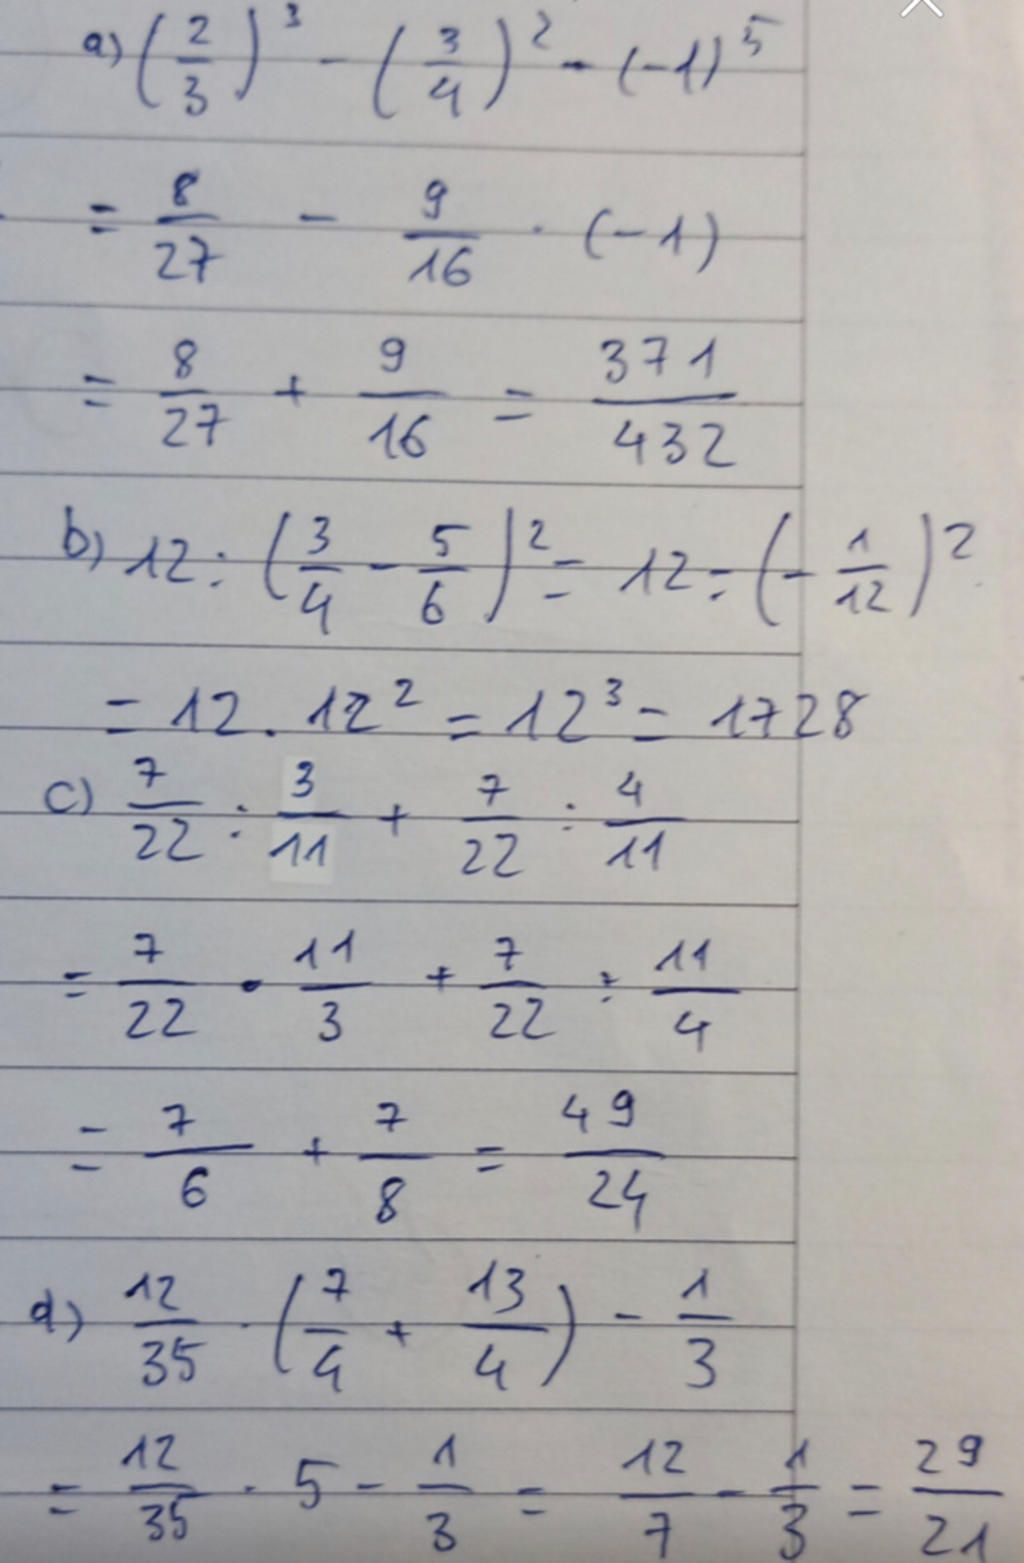 a) (2/3)³ - (3/4)² - (-1)⁵
= 8/27 - 9/16 · (-1)
= 8/27 + 9/16 = 371/432
b) 12 : (3/4 - 5/6)² = 12 : (- 1/12)²
= 12 . 12² = 12³ = 1728
c) 7/22 : 3/11 + 7/22 : 4/11
= 7/22 · 11/3 + 7/22 : 11/4
= 7/6 + 7/8 = 49/24
d) 12/35 · (7/4 + 13/4) - 1/3
= 12/35 · 5 - 1/3 = 12/7 - 1/3 = 29/21